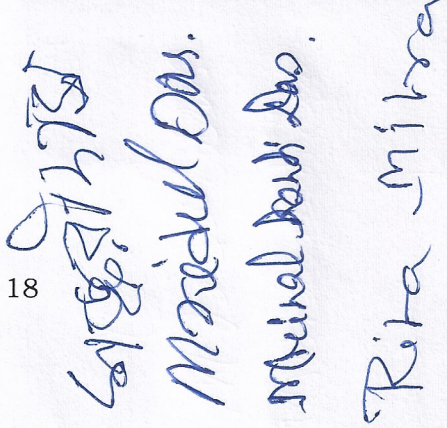 Mridul Das.
Mrinal Kanti Das.
Rita Mitra
18